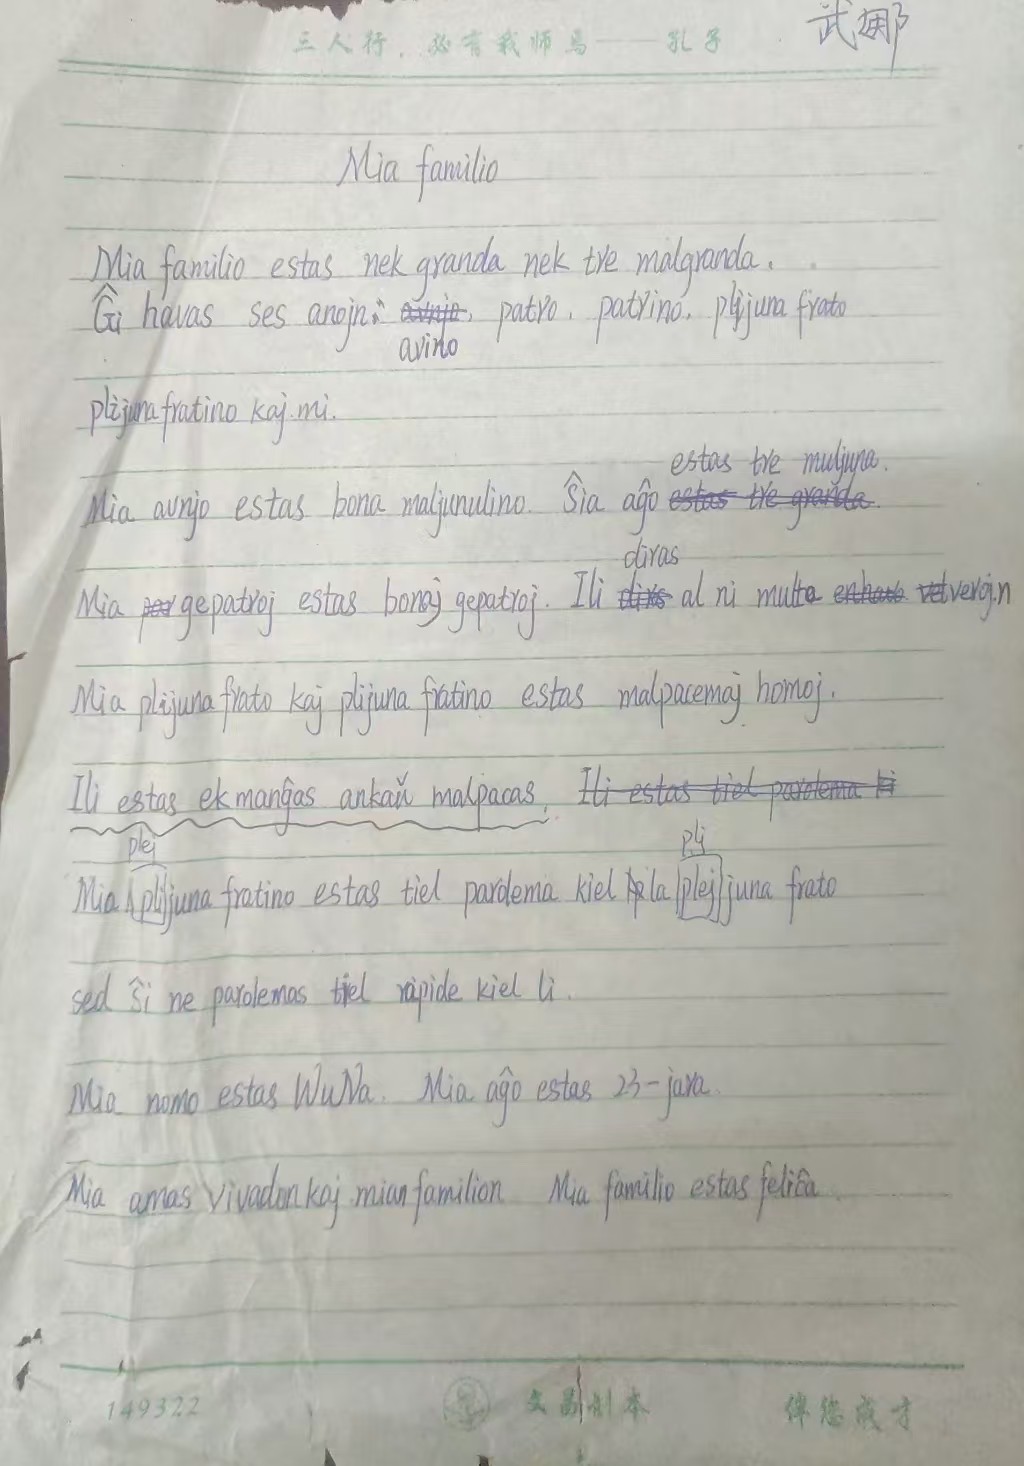 三人行，必有我师焉——孔子
武娜
Mia familio
Mia familio estas nek granda nek tre malgranda.
Ĝi havas ses anojn: avnjo, patro, patrino, plijuna frato
avino
plijuna fratino kaj mi.
estas tre muljuna.
Mia avnjo estas bona maljunulino. Ŝia aĝo estas tre granda.
diras
Mia gepatroj estas bonaj gepatroj. Ili al ni multa verojn
Mia plijuna frato kaj plijuna fratino estas malpacemaj homoj.
Ili estas ek manĝas ankaŭ malpacas. Ili estas tiel parolema ki
plej plj
Mia plijuna fratino estas tiel parolema kiel la plej juna frato
sed ŝi ne parolemas tiel rapide kiel li.
Mia nomo estas WuNa. Mia aĝo estas 23-jara.
Mia amas vivadon kaj mian familion Mia familio estas feliĉa
149322 文昌制本 伴您成才